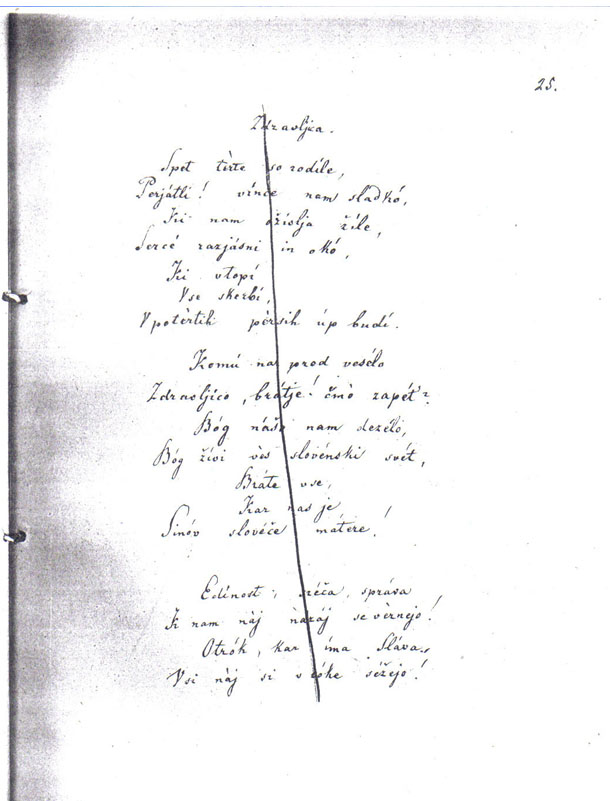 25.
Zdravljica.
Spet tèrte so rodile,
Perjátli! vínce nam sladkó,
Ki nam ožívlja žíle,
Sercé razjásni in okó,
Ki vtopí
Vse skerbí,
V potèrtih pèrsih úp budí.
Komú na prod veselo
Zdravljico, brátje! čmò zapét?
Bóg nášo nam deželo,
Bóg žívi vès slovénski svét,
Bráte vse,
Kar nas je
Sinóv slovéče mátere!
Edínost, sréča, správa
K nam nàj nazáj se vèrnejo!
Otrók, kar íma Sláva,
Vsi nàj si v róke séžejo!